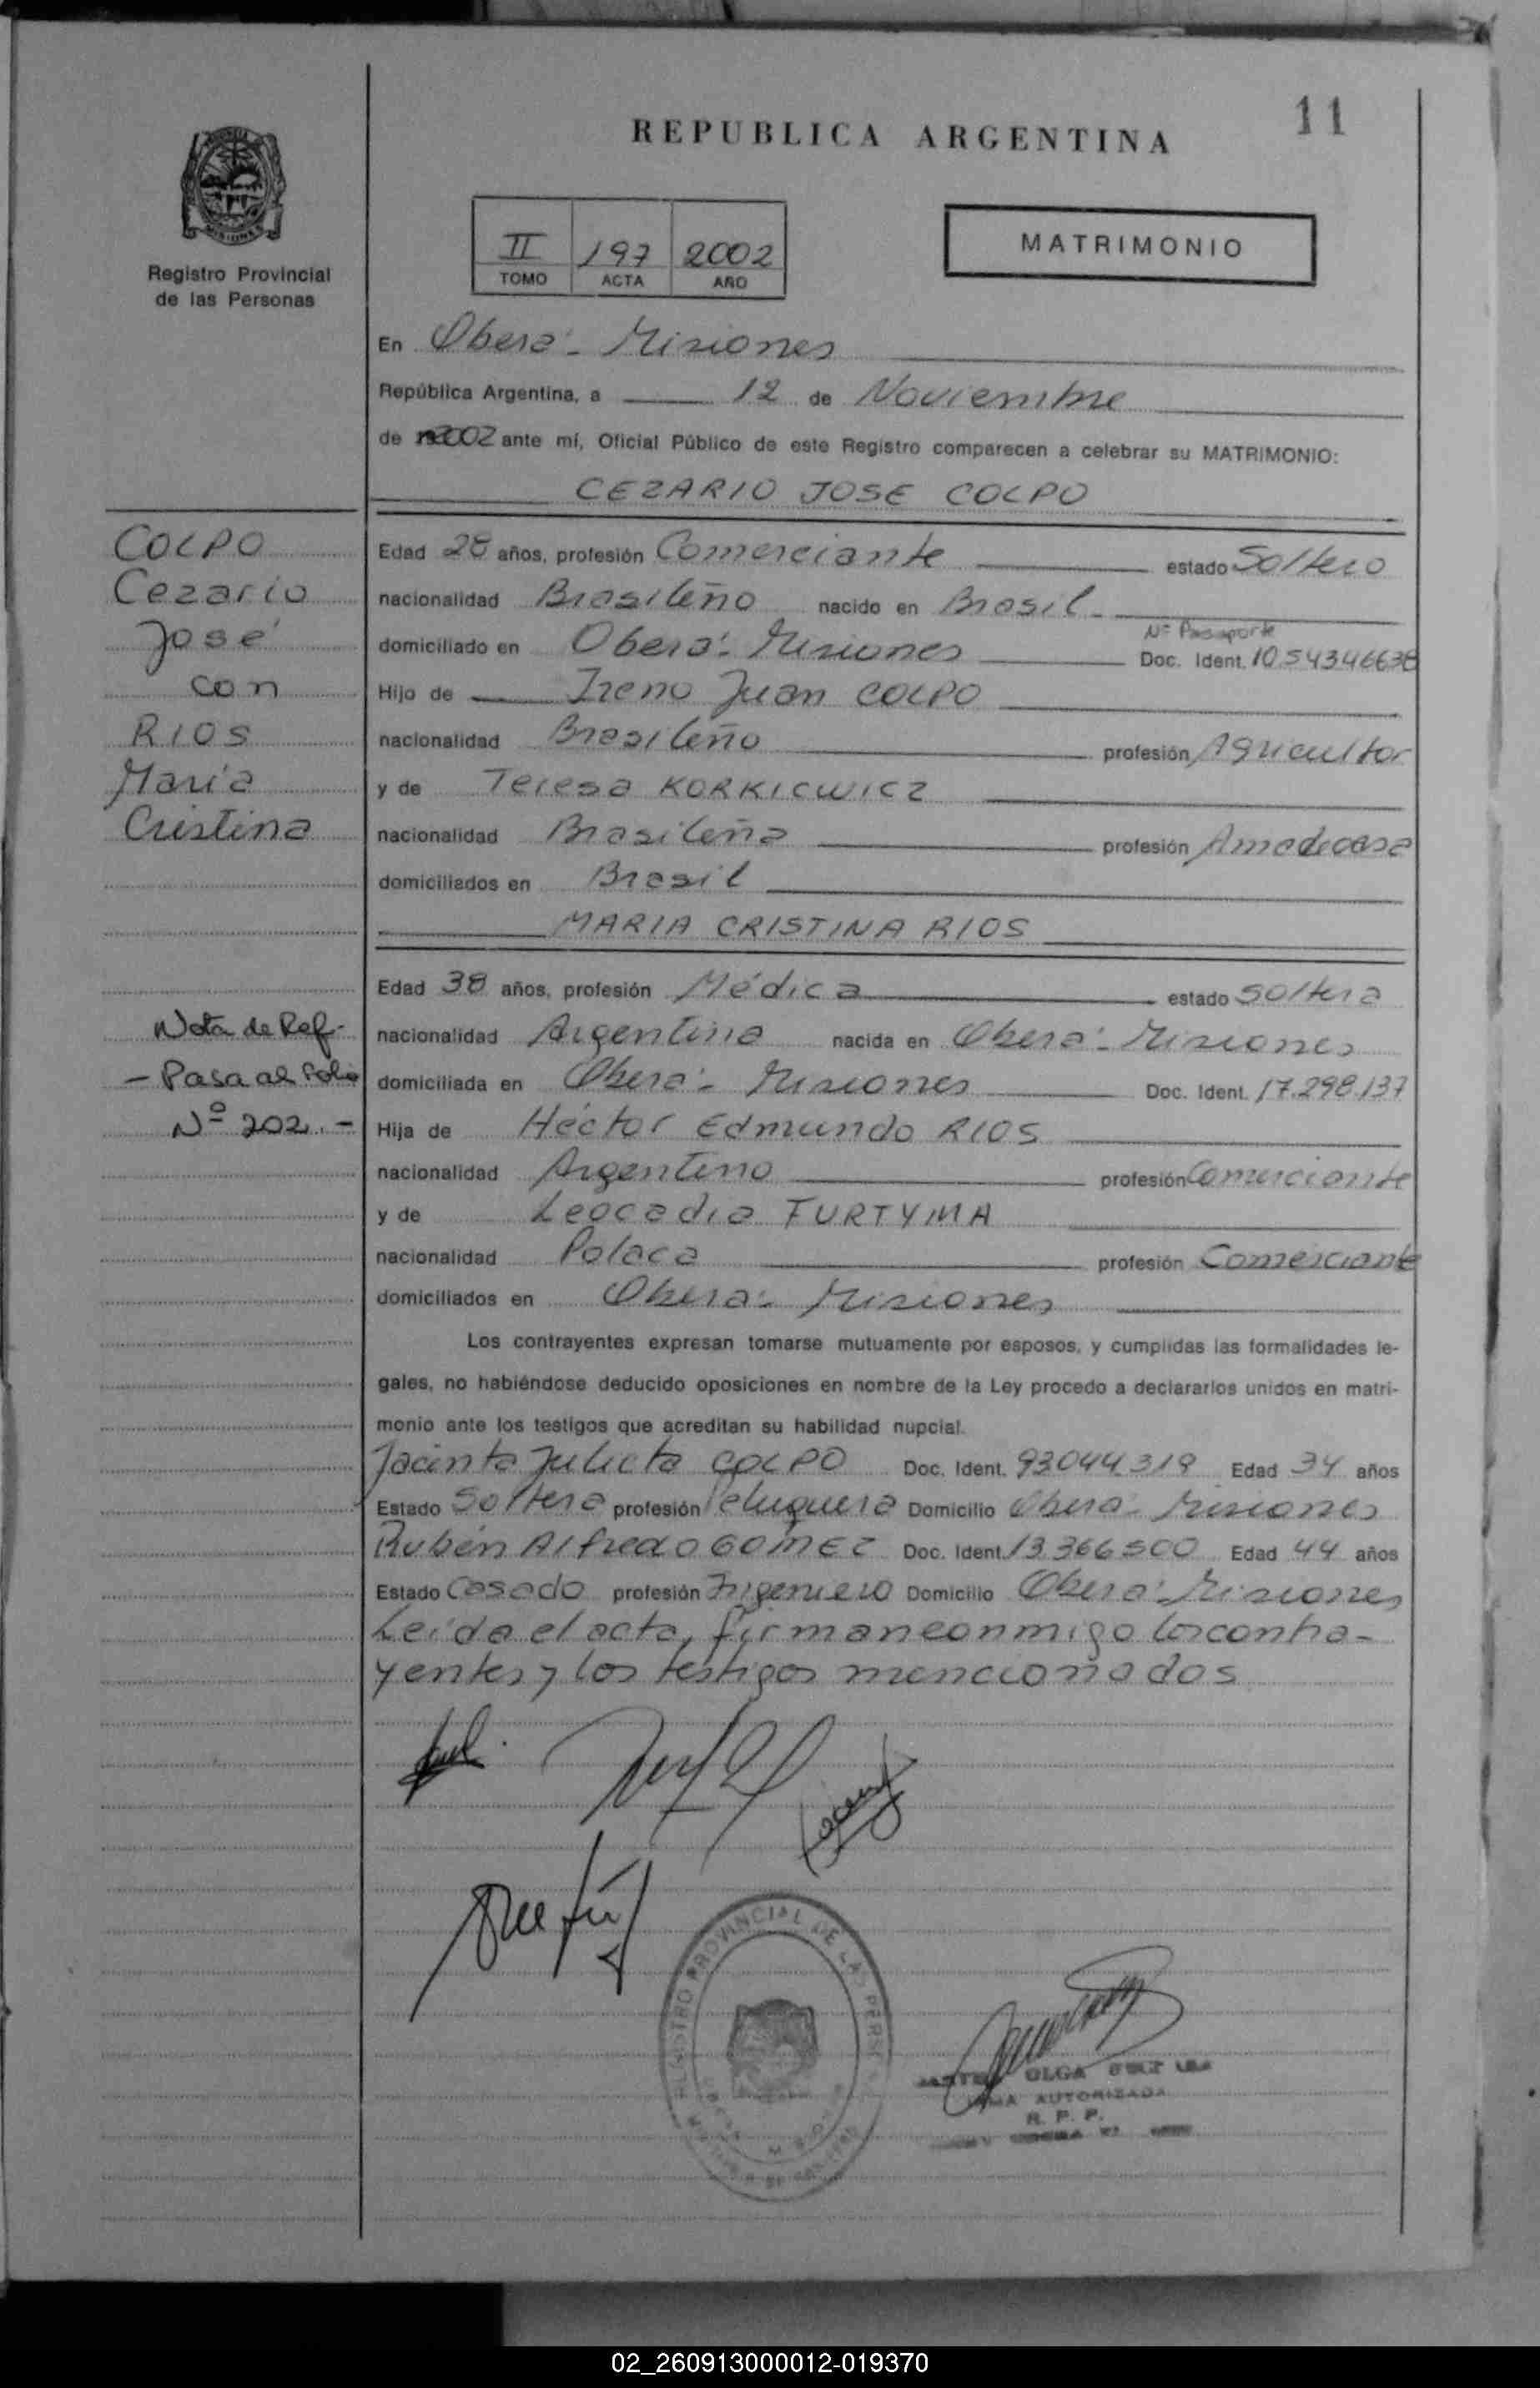 11
REPUBLICA ARGENTINA
MISIONES
Registro Provincial
de las Personas
II 197 2002
TOMO ACTA AÑO
MATRIMONIO
En Oberá - Misiones
República Argentina, a 12 de Noviembre
de 2002 ante mí, Oficial Público de este Registro comparecen a celebrar su MATRIMONIO:
CEZARIO JOSE COLPO
COLPO
Cezario
José
con
RIOS
Maria
Cristina
Edad 28 años, profesión Comerciante estado Soltero
nacionalidad Brasileño nacido en Brasil
Nº Pasaporte
domiciliado en Oberá - Misiones Doc. Ident. 1054346638
Hijo de Ireno Juan COLPO
nacionalidad Brasileño profesión Agricultor
y de Teresa KORKICWICZ
nacionalidad Brasileña profesión Amadecasa
domiciliados en Brasil
MARIA CRISTINA RIOS
Edad 38 años, profesión Médica estado soltera
Nota de Ref.-
- Pasa al Folio
Nº 202.-
nacionalidad Argentina nacida en Oberá - Misiones
domiciliada en Oberá - Misiones Doc. Ident. 17.298.137
Hija de Héctor Edmundo RIOS
nacionalidad Argentino profesión Comerciante
y de Leocadia FURTYMA
nacionalidad Polaca profesión Comerciante
domiciliados en Oberá - Misiones
Los contrayentes expresan tomarse mutuamente por esposos, y cumplidas las formalidades le-
gales, no habiéndose deducido oposiciones en nombre de la Ley procedo a declararlos unidos en matri-
monio ante los testigos que acreditan su habilidad nupcial.
Jacinta Julieta COLPO Doc. Ident. 93044319 Edad 34 años
Estado Soltera profesión Peluquera Domicilio Oberá - Misiones
Rubén Alfredo GOMEZ Doc. Ident. 13.366500 Edad 44 años
Estado Casado profesión Ingeniero Domicilio Oberá - Misiones
Leída el acta, firman conmigo los contra-
yentes y los testigos mencionados
REGISTRO PROVINCIAL DE LAS
OLGA
AUTORIZADA
R. P. P.
02_260913000012-019370